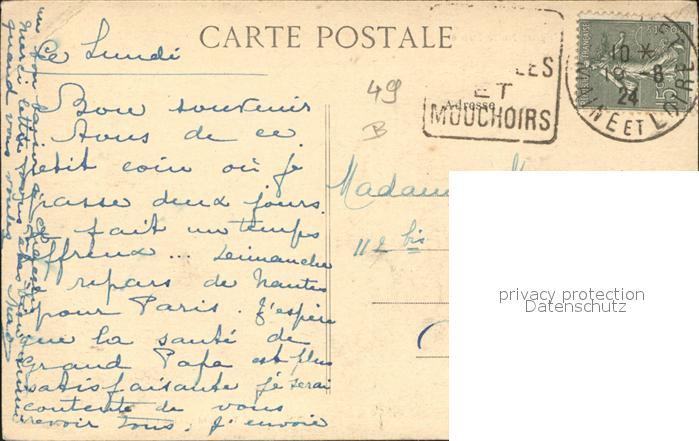 CARTE POSTALE
Le Lundi
Bon souvenir
à tous de ce
petit coin où je
passe deux jours.
Il fait un temps
affreux... Dimanche
je repars de Nantes
pour Paris. J'espère
que la santé de
Grand Papa est plus
satisfaisante je serai
contente de vous
revoir tous. J'envoie
un bon baiser à
Merci lettre
quand vous voulez
49
B
Adresse
LES
ET
MOUCHOIRS
10 *
18 - 8
24
NE ET LOIRE
15
Madame
112 bis
privacy protection
Datenschutz